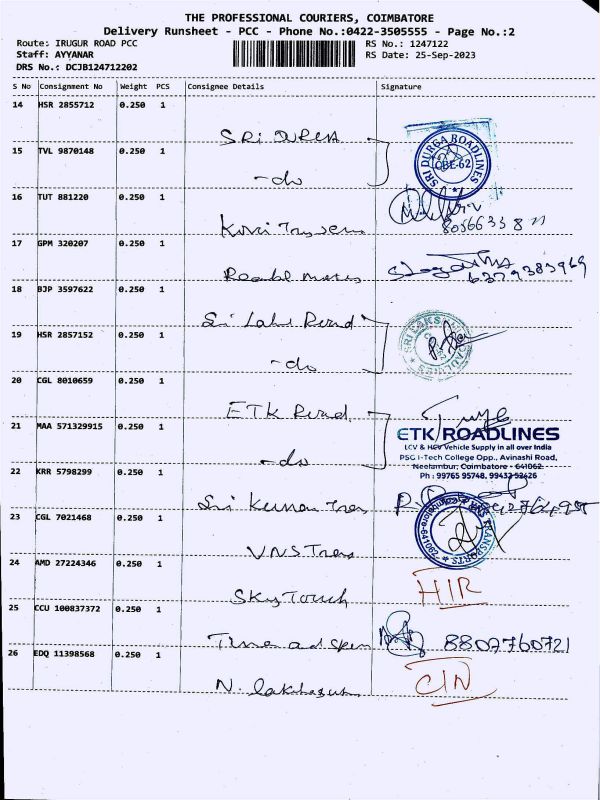 THE PROFESSIONAL COURIERS, COIMBATORE
Delivery Runsheet - PCC - Phone No.:0422-3505555 - Page No.:2
Route: IRUGUR ROAD PCC
Staff: AYYANAR
DRS No.: DCJB124712202
RS No.: 1247122
RS Date: 25-Sep-2023
S No Consignment No Weight PCS Consignee Details Signature
14 HSR 2855712 0.250 1
SRI DURGA
SRI DURGA ROADLINES
CBE-62
15 TVL 9870148 0.250 1
-do
16 TUT 881220 0.250 1
17 GPM 320207 0.250 1
6379383969
18 BJP 3597622 0.250 1
Sri
19 HSR 2857152 0.250 1
-do
20 CGL 8010659 0.250 1
ETK Road
21 MAA 571329915 0.250 1
-do
ETK ROADLINES
LCV & HCV Vehicle Supply in all over India
PSG i-Tech College Opp., Avinashi Road,
Neelambur, Coimbatore - 641062.
Ph : 99765 95748, 99432 52626
22 KRR 5798299 0.250 1
Sri Kumaran Trans
23 CGL 7021468 0.250 1
VNS Trans
24 AMD 27224346 0.250 1
Sky Touch
HIR
25 CCU 100837372 0.250 1
Time and
8807760721
26 EDQ 11398568 0.250 1
N.
CIN